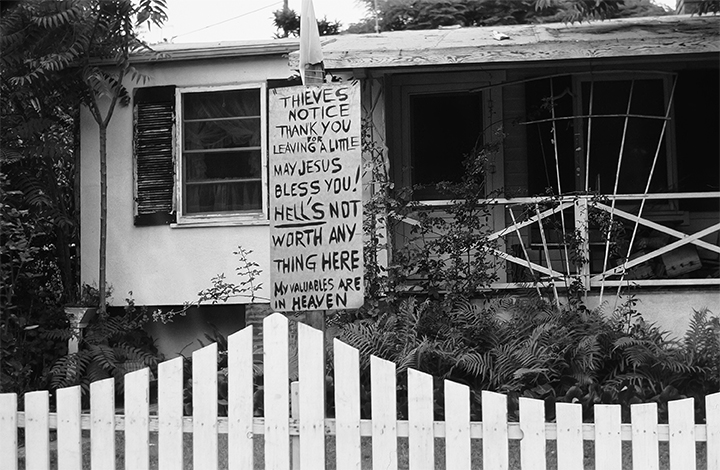 THIEVES
NOTICE
THANK YOU
FOR
LEAVING A LITTLE
MAY JESUS
BLESS YOU!
HELL'S NOT
WORTH ANY
THING HERE
MY VALUABLES ARE
IN HEAVEN